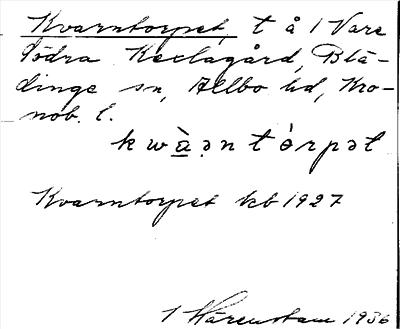 Kvarntorpet, t å 1 Vare
Södra Keclagård, Blä-
dinge sn, Allbo hd, Kro-
nob. l.
kwàạnt̀órpət
Kvarntorpet kb 1927
1 Härenstam 1936